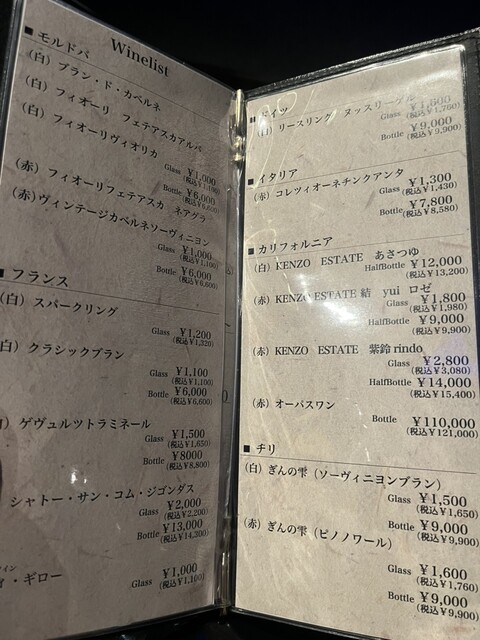 Winelist
■ モルドバ
(白) ブラン・ド・カベルネ
(白) フィオーリ フェテアスカアルバ
(白) フィオーリヴィオリカ
Glass ¥1,000
(税込¥1,100)
Bottle ¥6,000
(税込¥6,600)
(赤) フィオーリフェテアスカ ネアグラ
(赤)ヴィンテージカベルネソーヴィニヨン
Glass ¥1,000
(税込¥1,100)
Bottle ¥6,000
(税込¥6,600)
■ フランス
(白) スパークリング
Glass ¥1,200
(税込¥1,320)
白) クラシックブラン
Glass ¥1,100
(税込¥1,100)
Bottle ¥6,000
(税込¥6,600)
) ゲヴュルツトラミネール
Glass ¥1,500
(税込¥1,650)
Bottle ¥8000
(税込¥8,800)
シャトー・サン・コム・ジゴンダス
Glass ¥2,000
(税込¥2,200)
Bottle ¥13,000
(税込¥14,300)
イン
ィ・ギロー
Glass ¥1,000
(税込¥1,100)
■ ドイツ
(白) リースリング ヌッスリーゲル
¥1,600
(税込¥1,760)
Bottle ¥9,000
(税込¥9,900)
■ イタリア
(赤) コレツィオーネチンクアンタ
Glass ¥1,300
(税込¥1,430)
Bottle ¥7,800
(税込¥8,580)
■ カリフォルニア
(白) KENZO ESTATE あさつゆ
HalfBottle ¥12,000
(税込¥13,200)
(赤) KENZO ESTATE 結 yui ロゼ
Glass ¥1,800
(税込¥1,980)
HalfBottle ¥9,000
(税込¥9,900)
(赤) KENZO ESTATE 紫鈴 rindo
Glass ¥2,800
(税込¥3,080)
HalfBottle ¥14,000
(税込¥15,400)
(赤) オーパスワン
Bottle ¥110,000
(税込¥121,000)
■ チリ
(白) ぎんの雫 (ソーヴィニヨンブラン)
Glass ¥1,500
(税込¥1,650)
Bottle ¥9,000
(税込¥9,900)
(赤) ぎんの雫 (ピノノワール)
Glass ¥1,600
(税込¥1,760)
Bottle ¥9,000
(税込¥9,900)